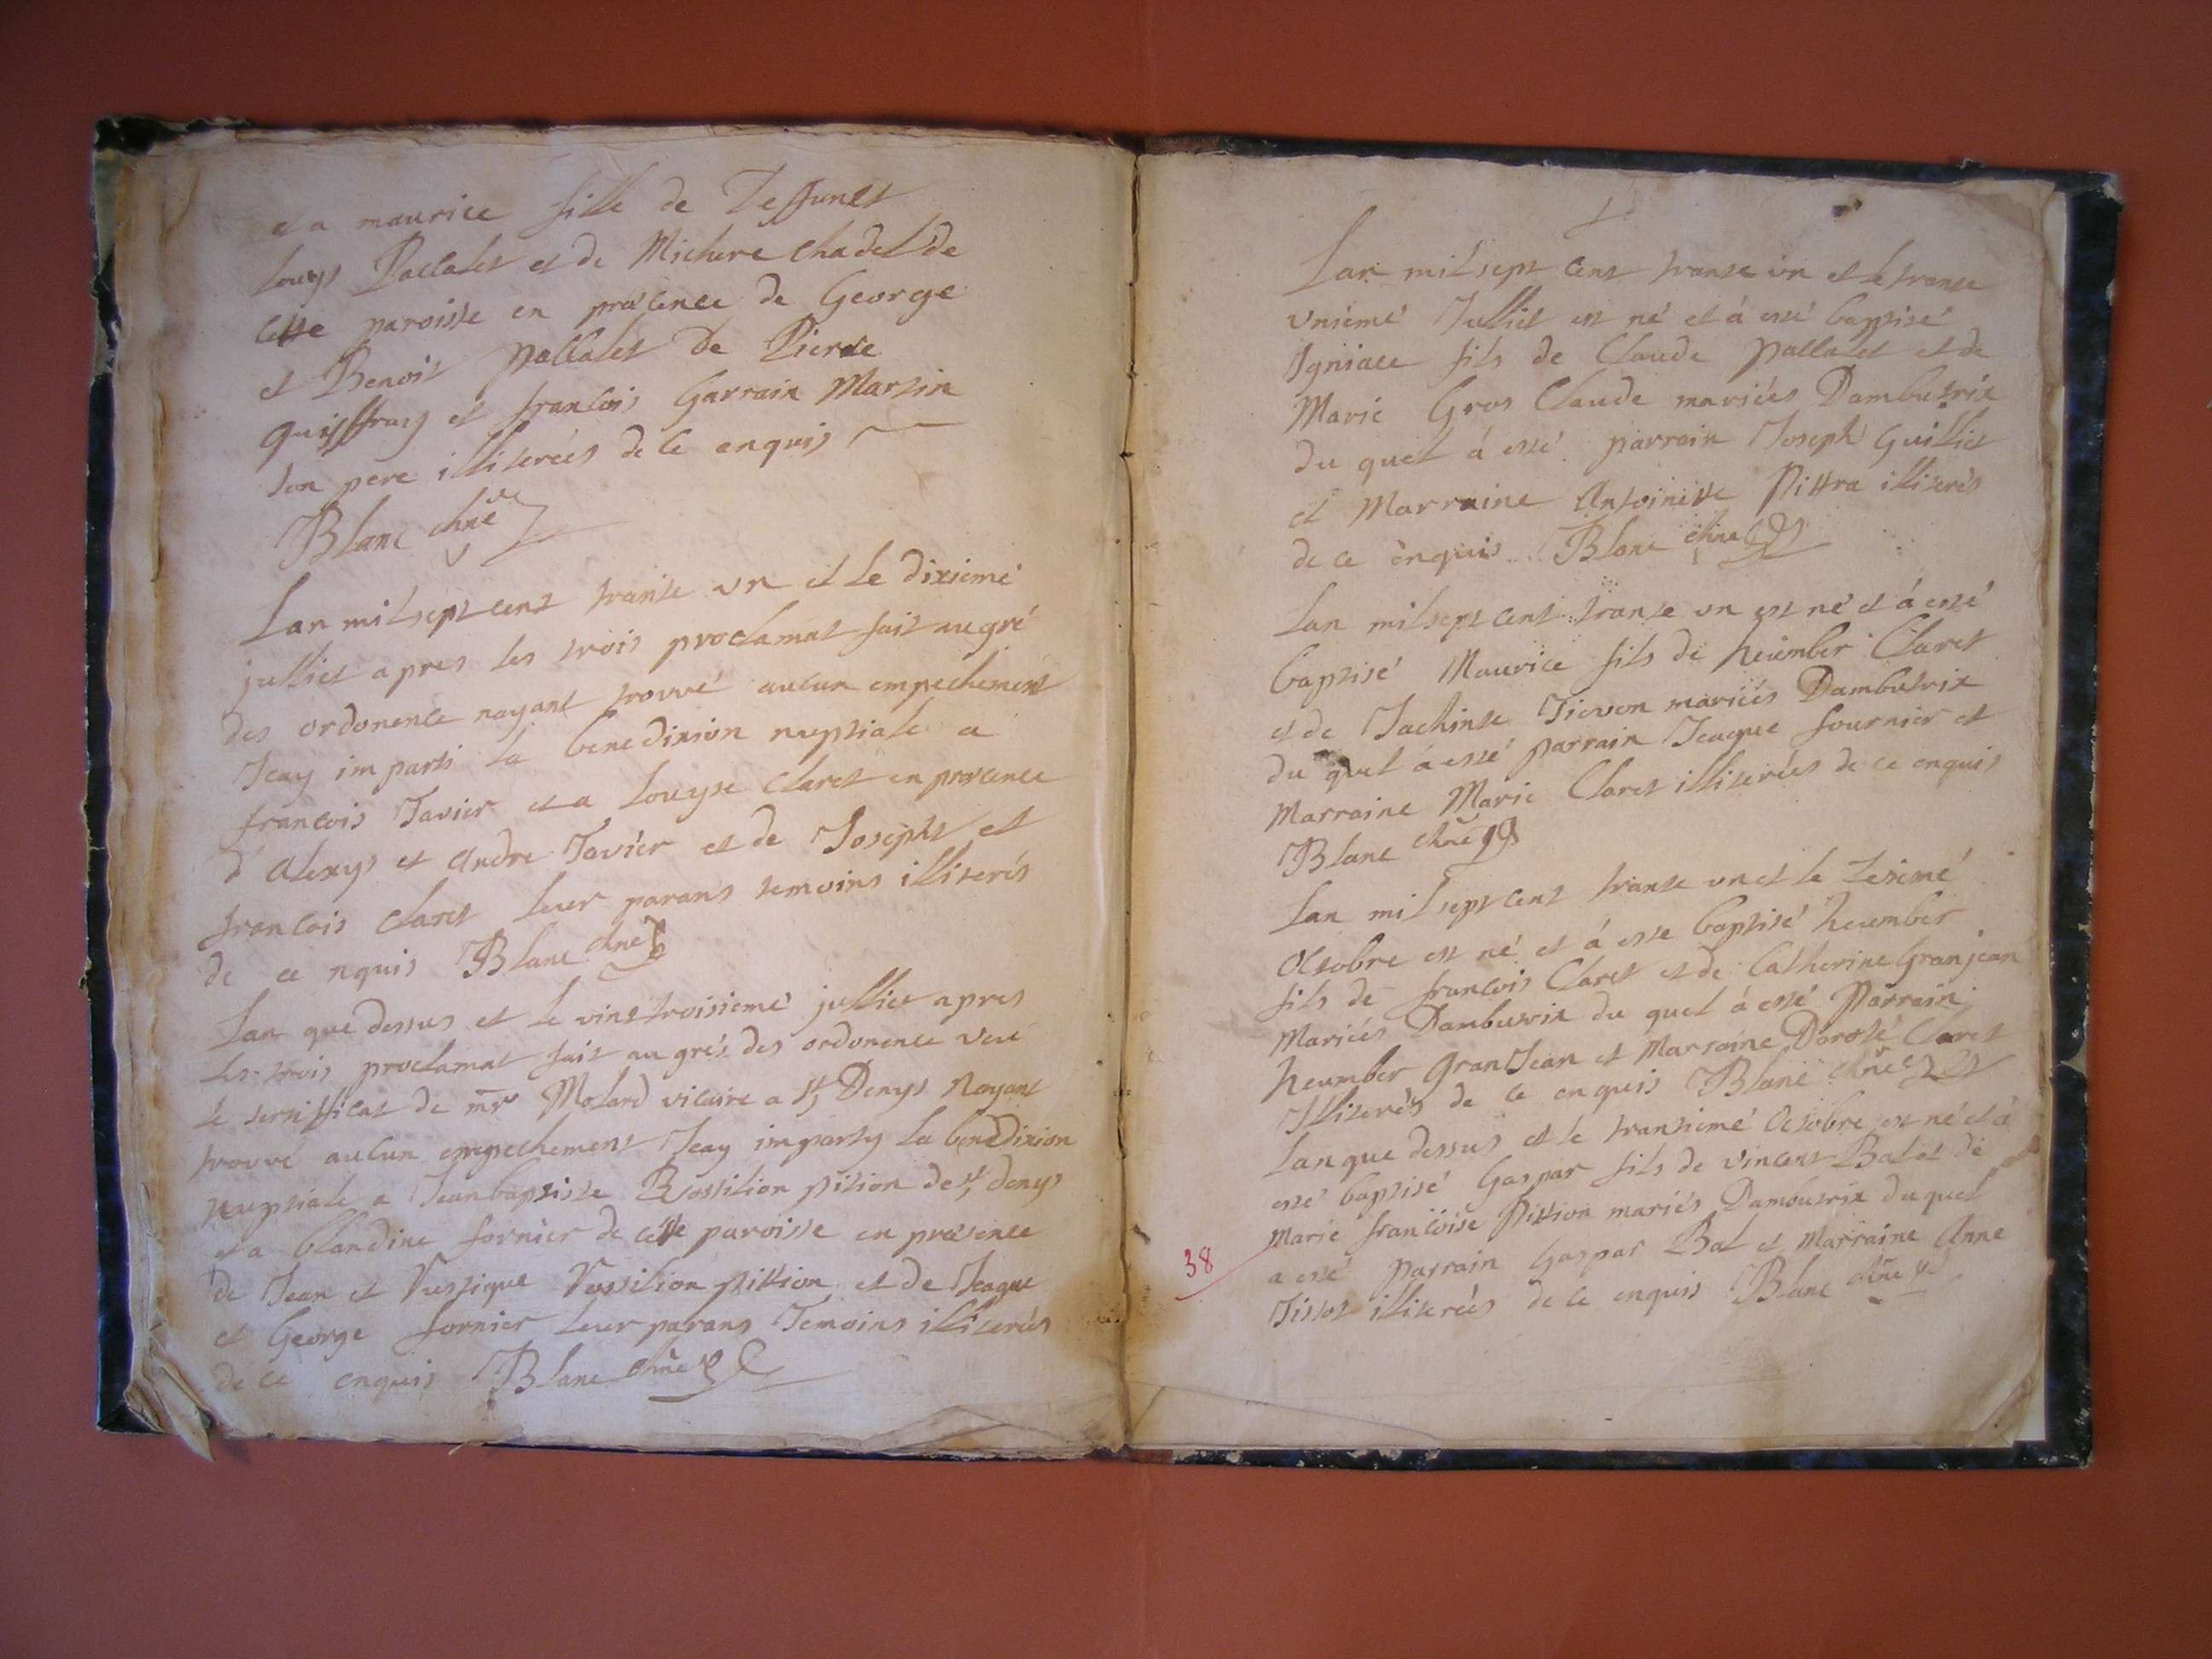 et a maurice fille de Deffunct
Louys Pallatet et de Michere chadel de
Cette paroisse en præcence de George
et Benoit Pallatet de Pierre
quiffray et francois Garrain Martin
son pere illiterées de ce enquis
Blanc chne
Lan mil sept cent trante un et le dixieme
julliet apres les trois proclamat fait au gré
des ordonence nayant trouvé aucun empechement
Jeay imparti la benedixion nuptiale a
francois Tavier et a Louyse Claret en præcence
d'Alexys et Andre Tavier et de Josepht et
francois Claret leur parans temoins illiterés
de ce nquis Blanc chne
Lan que dessus et le vint troisieme julliet apres
les trois proclamat fait au grés des ordonence veu
le sertifficat de mr Molard vicaire a st Denys Nayant
trouvé aucun empechement Jeay imparty la benedixion
Nuptiale a Jeanbaptiste Rossilion pition de st denys
et a blandine fornier de cette paroisse en præsence
de Jean et Rossilion pittion et de Jeaque
et George fornier leur parans Temoins illiterés
de ce enquis Blanc chne
Lan mil sept cent trante un et le trante
unieme Julliet est né et á esté baptisé
Igniace fils de Claude pallatet et de
Marie Gros Claude mariées Dambutrix
du quel á esté parrain Joseph Guilliet
et Marraine Antoinette Pittra illiterés
de ce enquis Blanc chne
Lan mil sept cent trante un est né et á esté
baptisé Maurice fils de heumber Claret
et de Jachinte Tievon mariées Dambutrix
du quel á esté parrain Jeaque fournier et
Marraine Marie Claret illiterées de ce enquis
Blanc chne
Lan mil sept cent trante un et le Zesiemé
Octobre est né et á esté baptisé heumber
fils de francois Claret et de Catherine Granjean
Mariées Dambutrix du quel á esté Parrain
heumber GranJean et Marraine Doroté Claret
Illiterés de ce enquis Blanc chne
Lan que dessus et le trantiemé Octobre est né et á
esté baptisé Gaspar fils de vincent Bal et de
Marie francoise Pittion mariés Damboutrix du quel
a esté parrain Gaspar Bal et Marraine Anne
38
Tissot illiterées de ce enquis Blanc chne